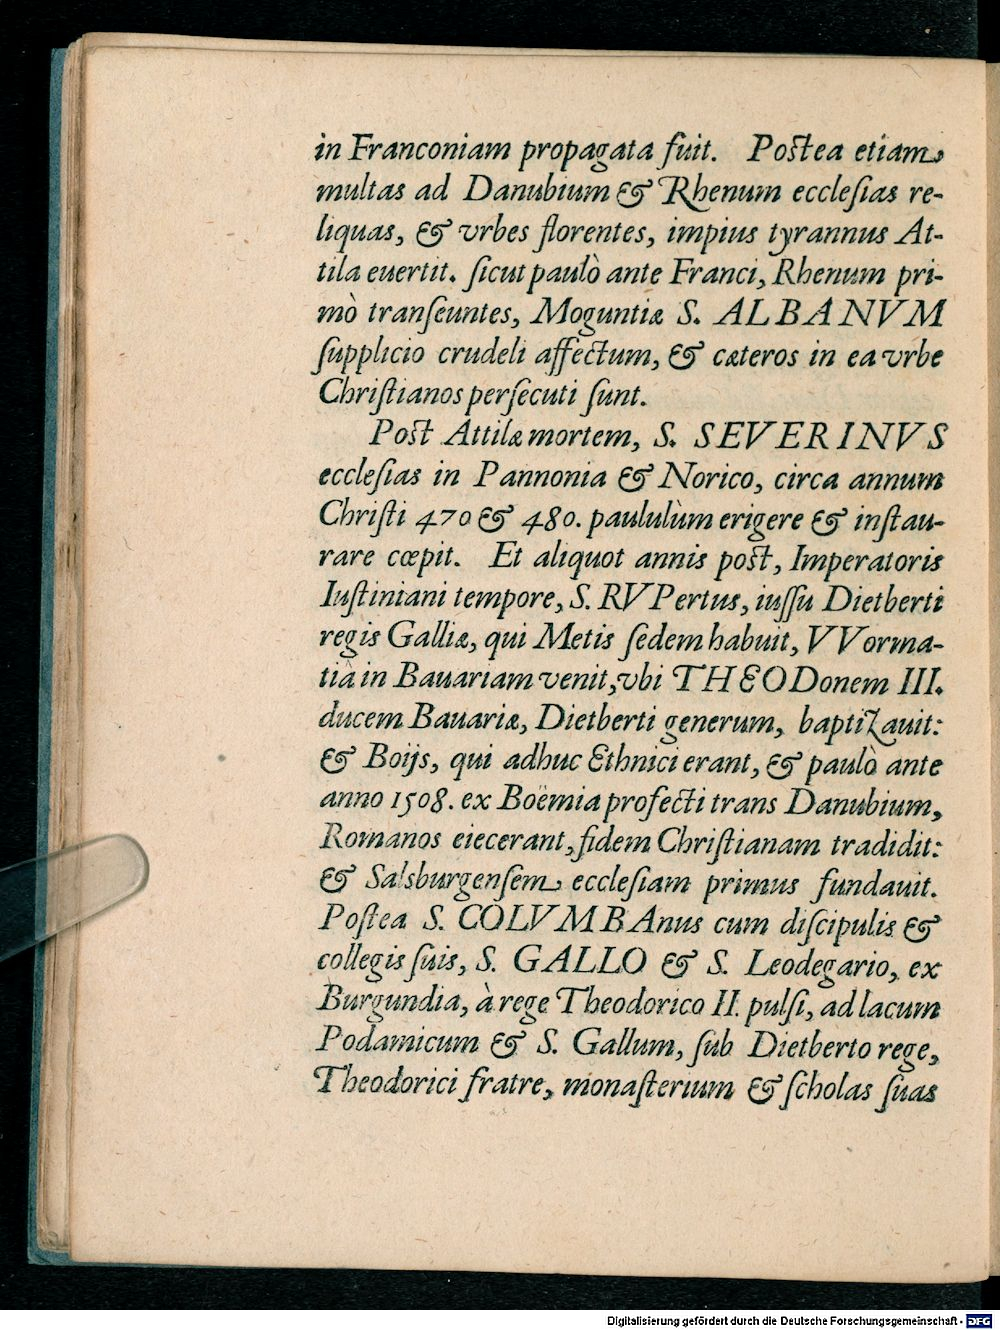 in Franconiam propagata fuit. Postea etiam
multas ad Danubium & Rhenum ecclesias re-
liquas, & vrbes florentes, impius tyrannus At-
tila euertit. sicut paulò ante Franci, Rhenum pri-
mò transeuntes, Moguntiæ S. ALBANVM
supplicio crudeli affectum, & cæteros in ea vrbe
Christianos persecuti sunt.
Post Attilæ mortem, S. SEVERINVS
ecclesias in Pannonia & Norico, circa annum
Christi 470 & 480. paululùm erigere & instau-
rare cœpit. Et aliquot annis post, Imperatoris
Iustiniani tempore, S. RVPertus, iussu Dietberti
regis Galliæ, qui Metis sedem habuit, VVorma-
tiâ in Bauariam venit, vbi THEODonem III.
ducem Bauariæ, Dietberti generum, baptizauit:
& Boijs, qui adhuc Ethnici erant, & paulò ante
anno 1508. ex Boëmia profecti trans Danubium,
Romanos eiecerant, fidem Christianam tradidit:
& Salsburgensem ecclesiam primus fundauit.
Postea S. COLVMBAnus cum discipulis &
collegis suis, S. GALLO & S. Leodegario, ex
Burgundia, à rege Theodorico II. pulsi, ad lacum
Podamicum & S. Gallum, sub Dietberto rege,
Theodorici fratre, monasterium & scholas suas
Digitalisierung gefördert durch die Deutsche Forschungsgemeinschaft - DFG